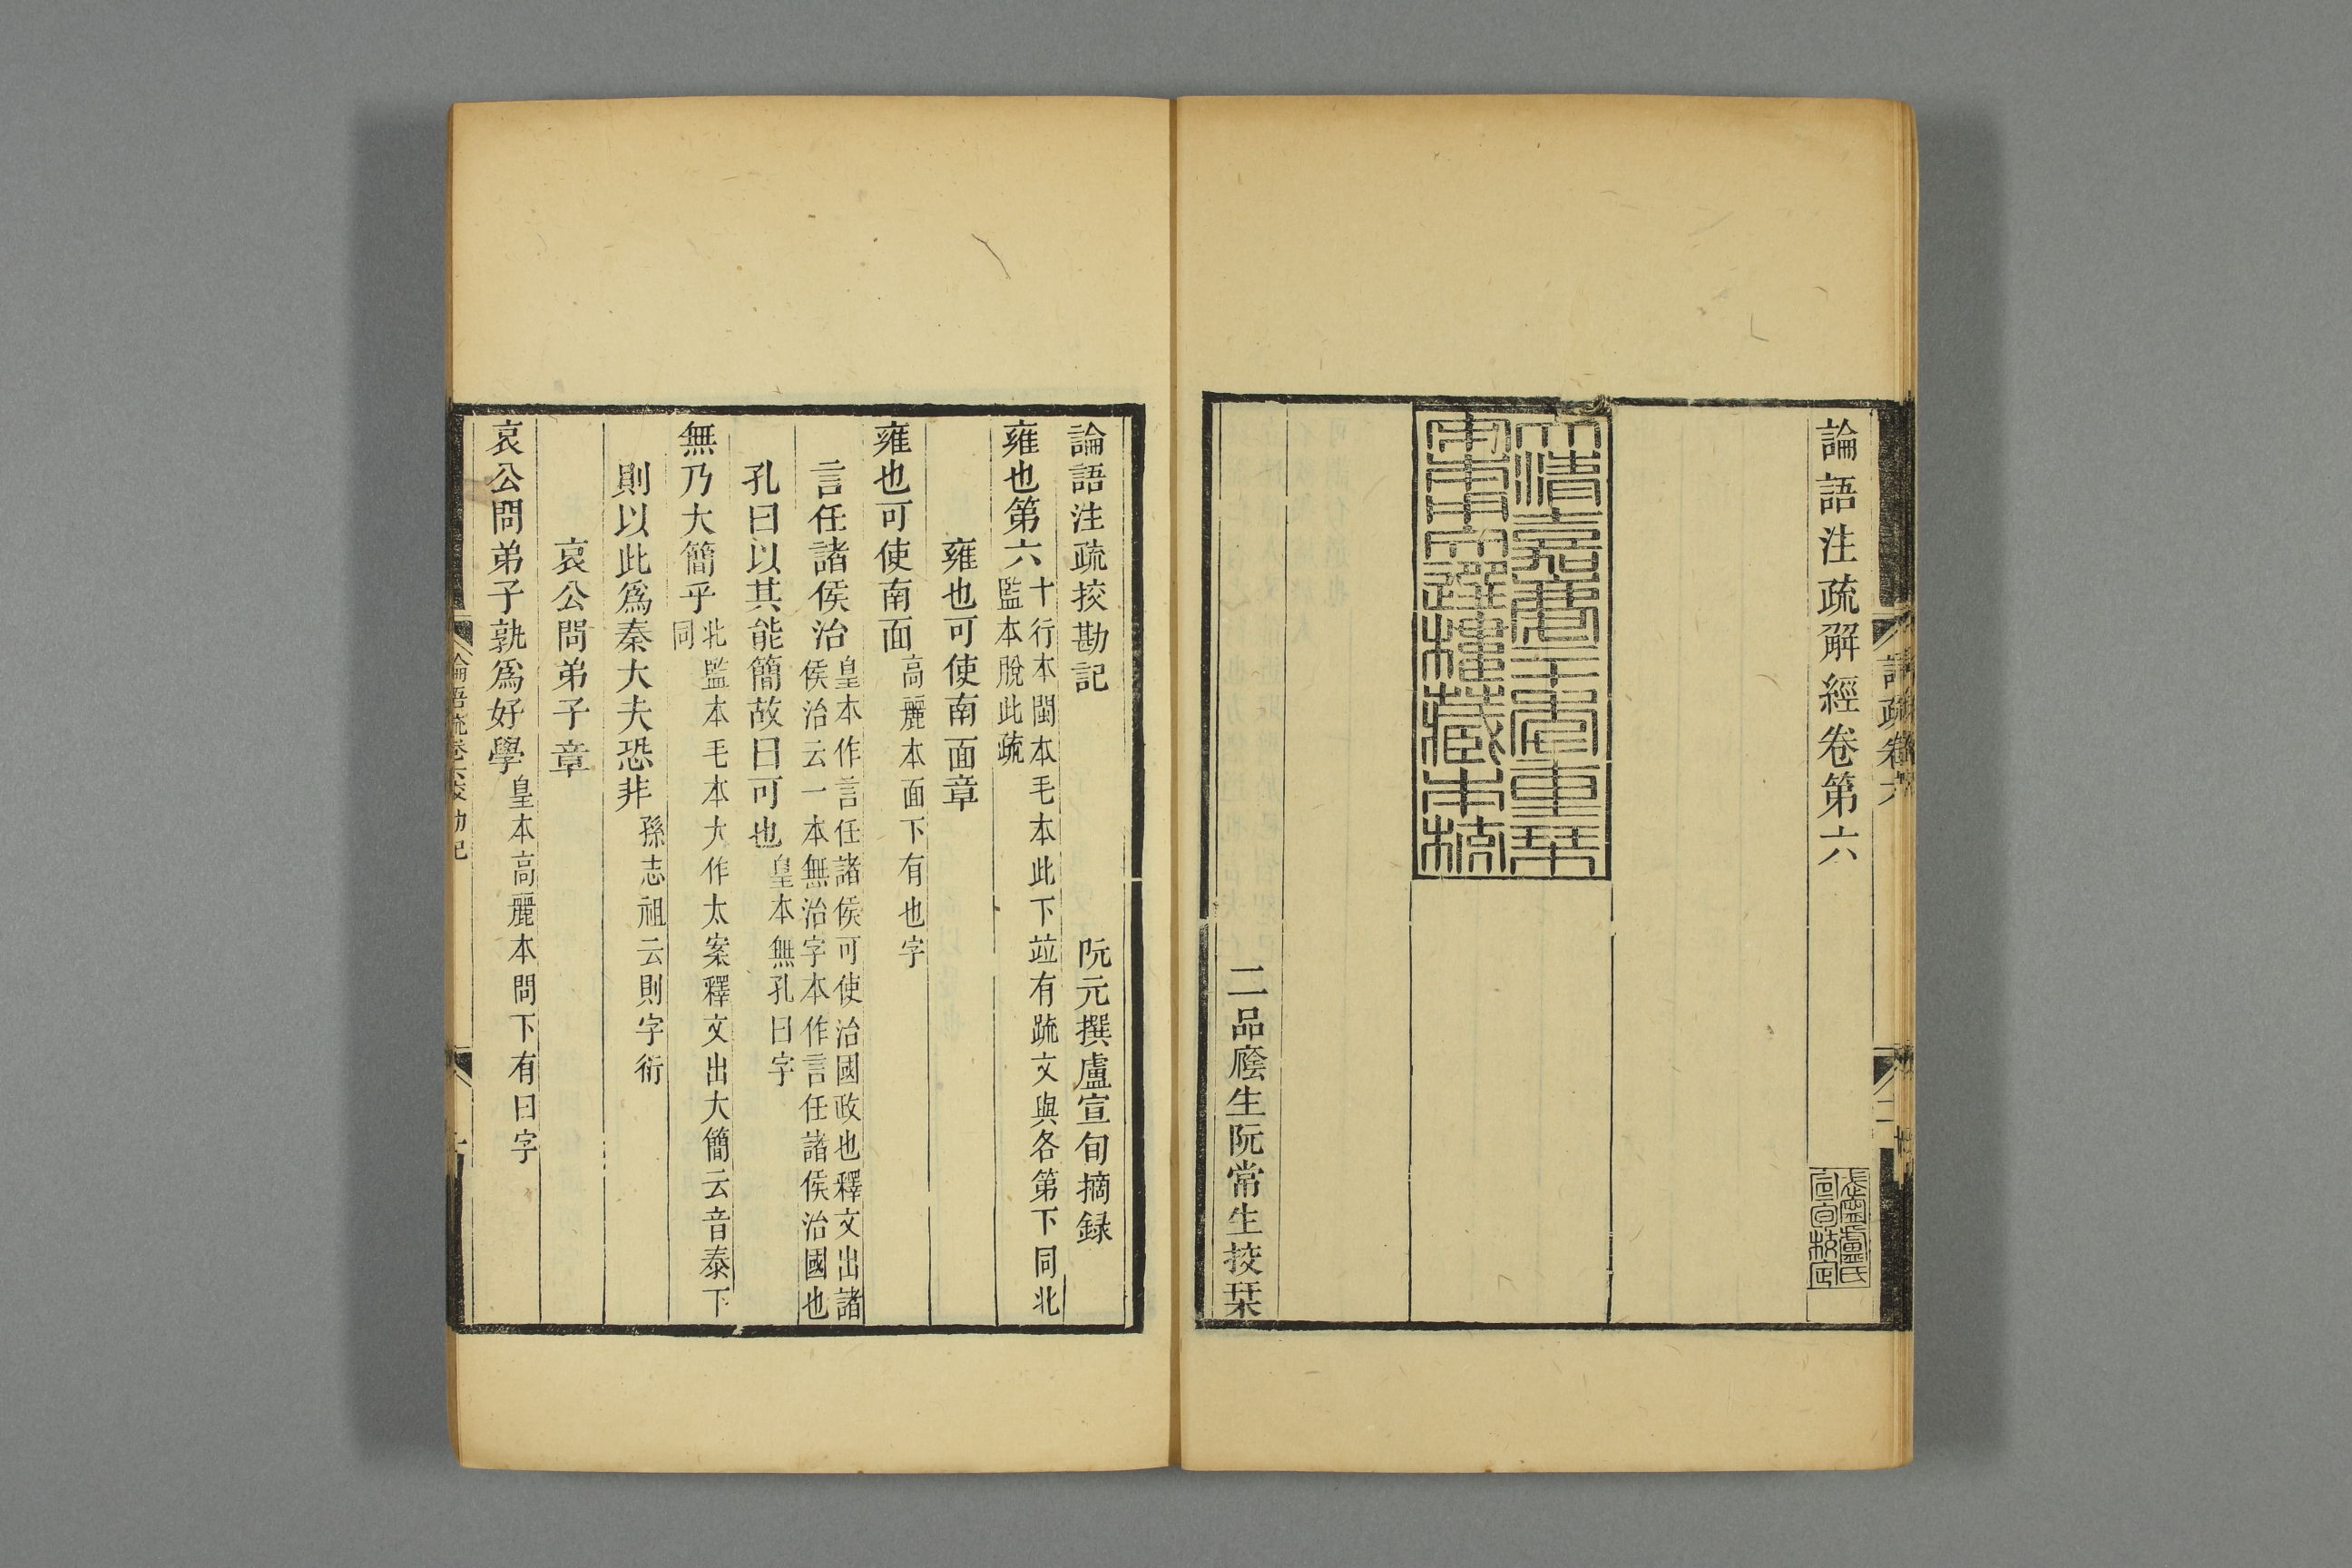 語疏卷六
論語注疏解經卷第六
大清嘉慶二十年重栞
文選樓藏本
二品廕生阮常生挍栞
論語注疏挍勘記
阮元撰盧宣旬摘録
雍也第六
十行本閩本毛本此下竝有疏文與各第下同北
監本脫此疏
雍也可使南面章
雍也可使南面
高麗本面下有也字
言任諸侯治
皇本作言任諸侯可使治國政也釋文出諸
侯治云一本無治字本作言任諸侯治國也
孔曰以其能簡故曰可也
皇本無孔曰字
無乃大簡乎
北監本毛本大作太案釋文出大簡云音泰下
同
則以此爲秦大夫恐非
孫志祖云則字衍
哀公問弟子章
哀公問弟子孰爲好學
皇本高麗本問下有曰字
論語疏卷六挍勘記